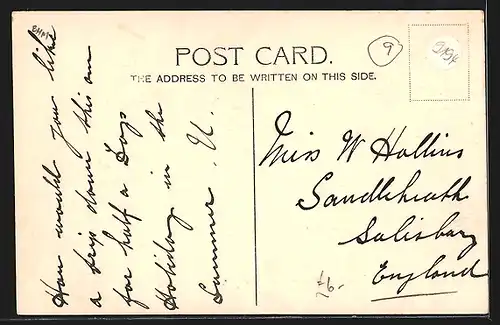 POST CARD.
THE ADDRESS TO BE WRITTEN ON THIS SIDE.
How would you like
a trip down this on
for half a Days
Holiday in the
Summer. U.
Miss W Hollins
Sandleheath
Salisbury
England
9